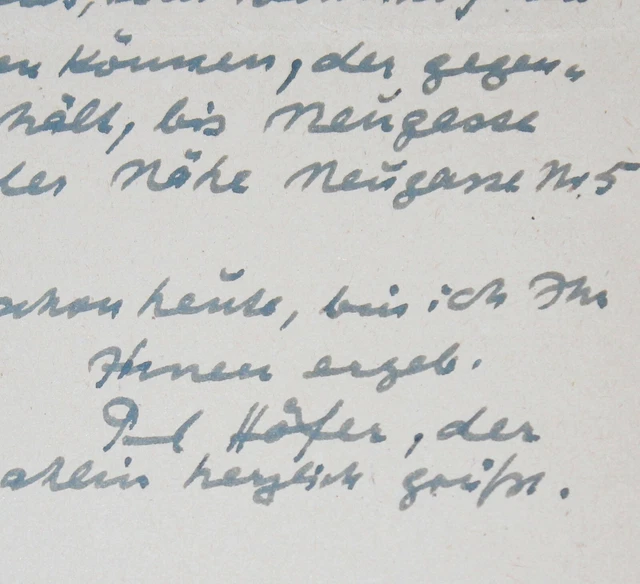 en können, der gegen-
hält, bis Neugasse
der Nähe Neugasse Nr. 5
schon heute, bin ich Ihr
Ihnen ergeb.
Höfer, der
herzlich grüßt.